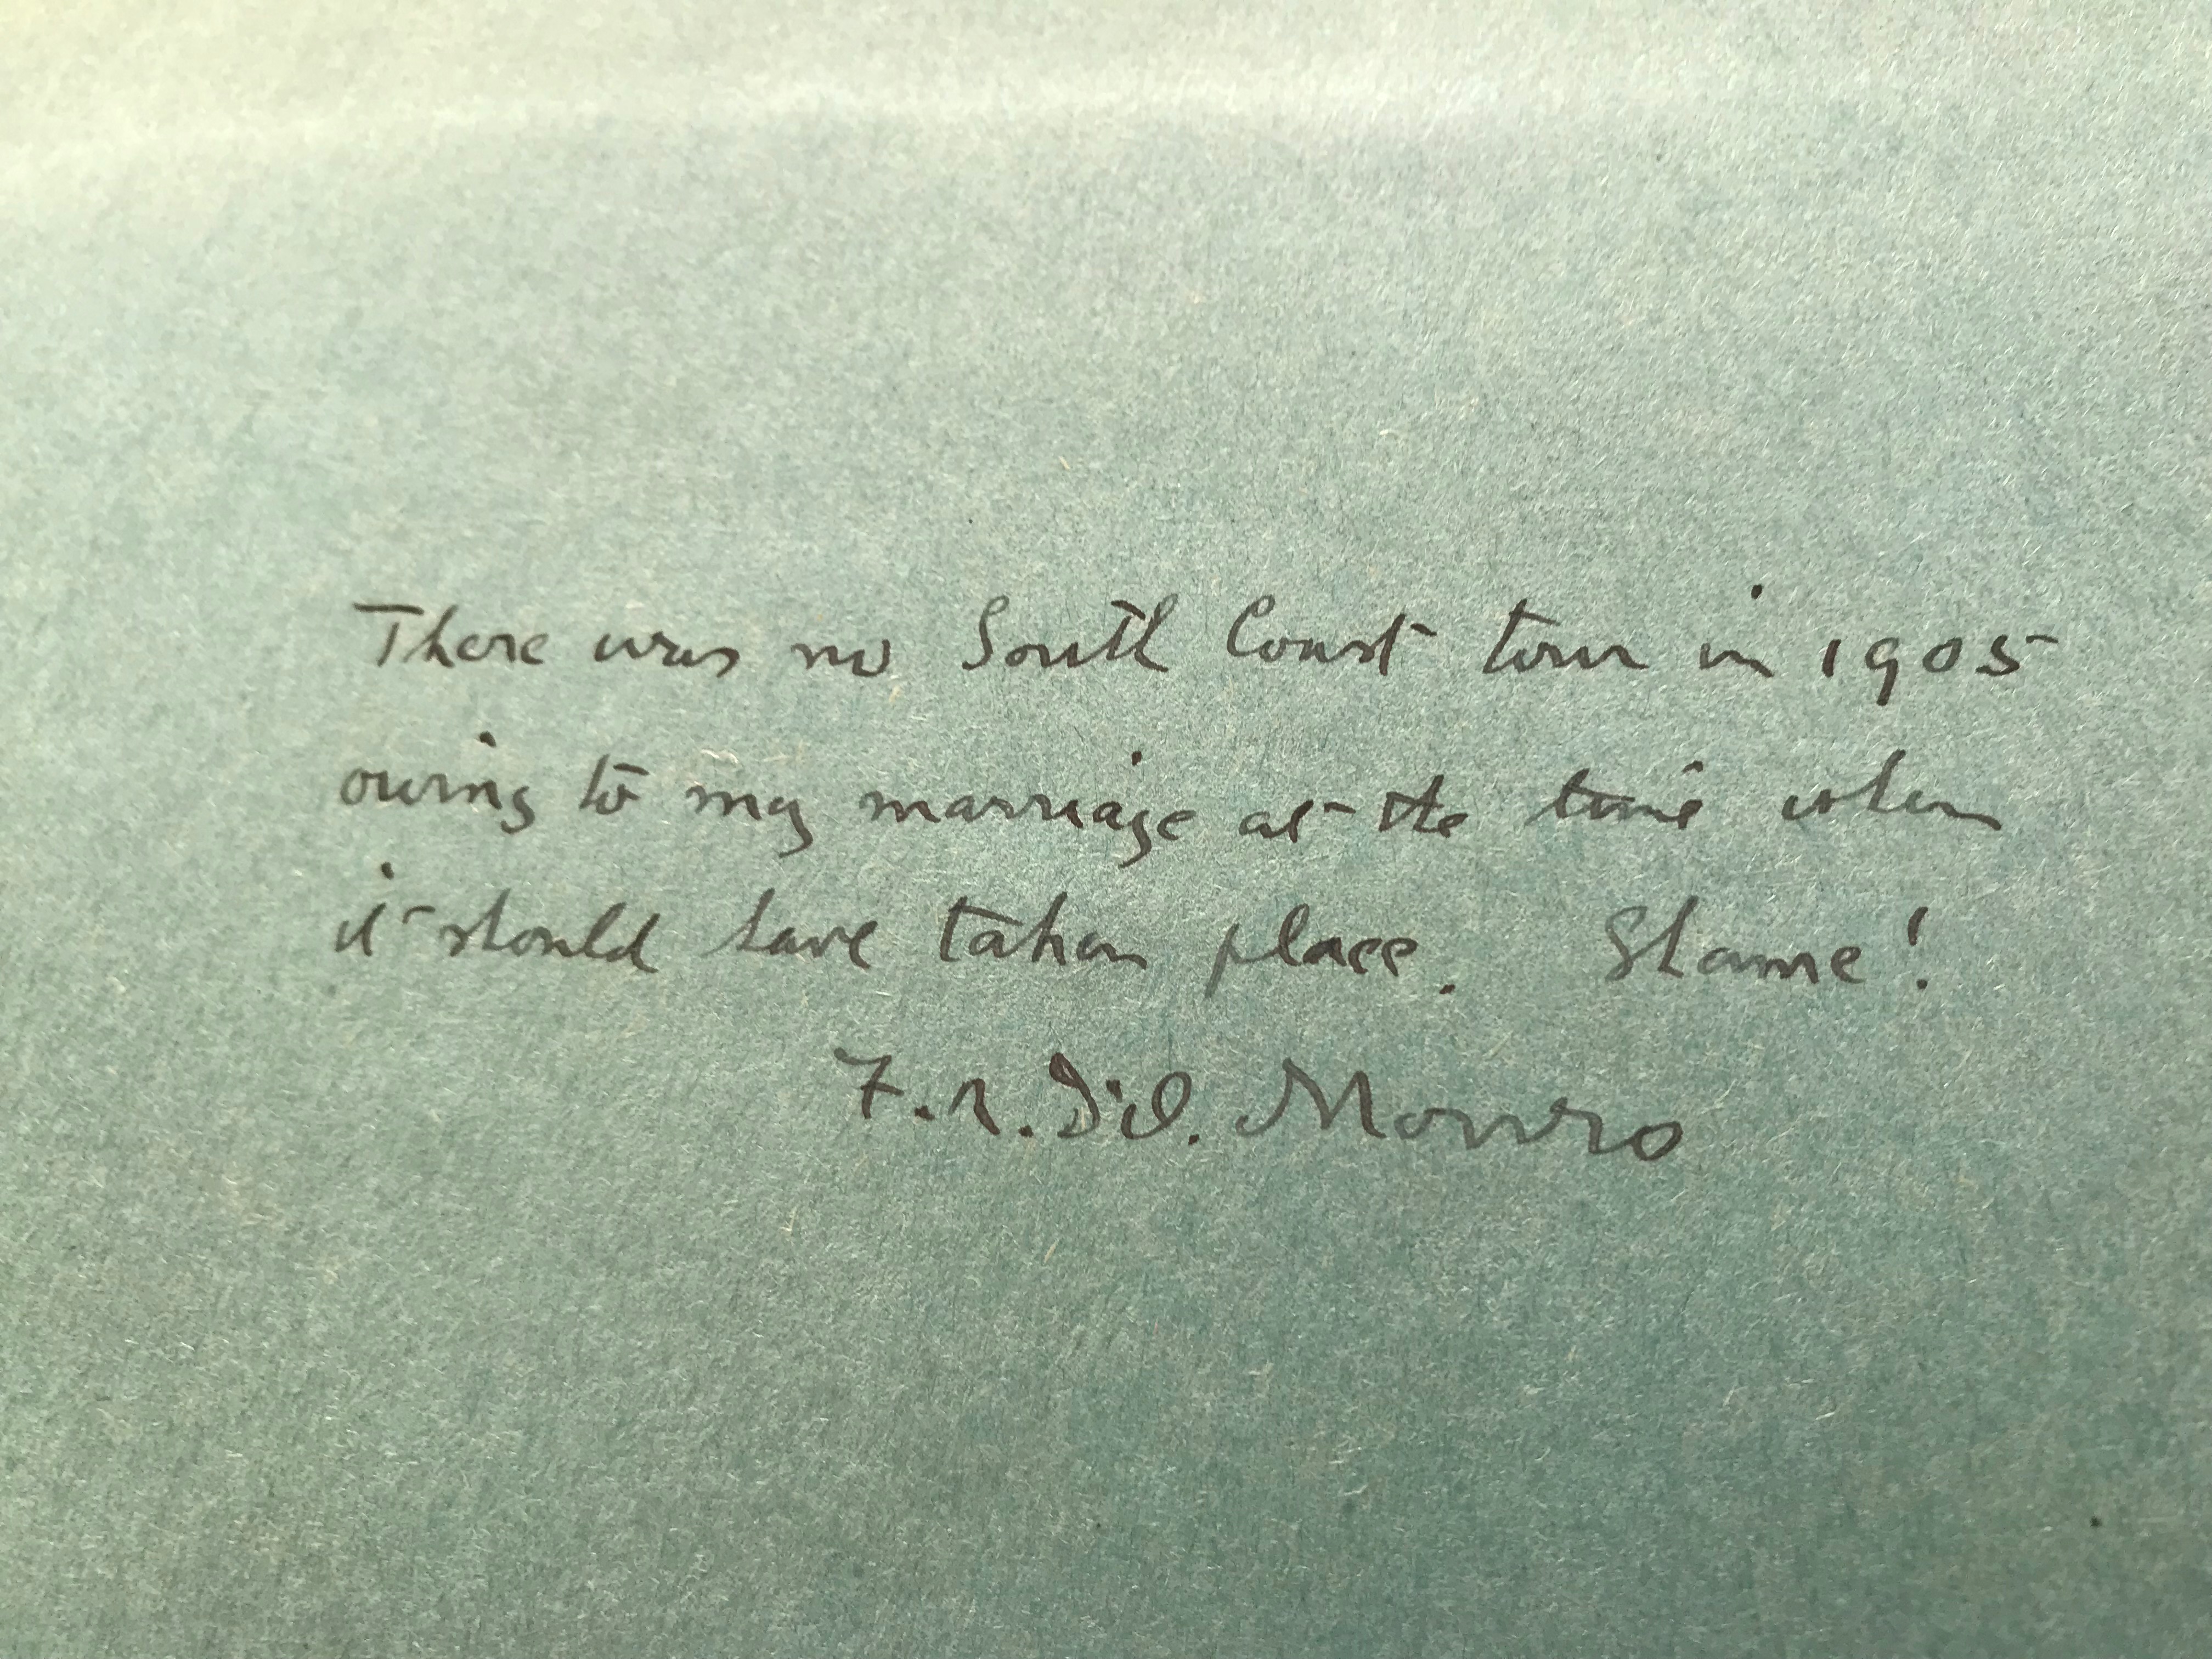 There was no South Coast tour in 1905
owing to my marriage at the time when
it should have taken place. Shame!
F.R.D'O. Monro